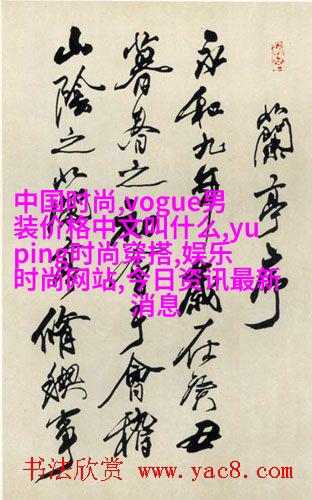 蘭亭序
永和九年歲在癸丑
暮春之初會于會稽
山陰之蘭亭脩禊事
中国时尚,vogue男
装价格中文叫什么,yu
ping时尚穿搭,娱乐
时尚网站,今日资讯最新
消息
书法欣赏 www.yac8.com